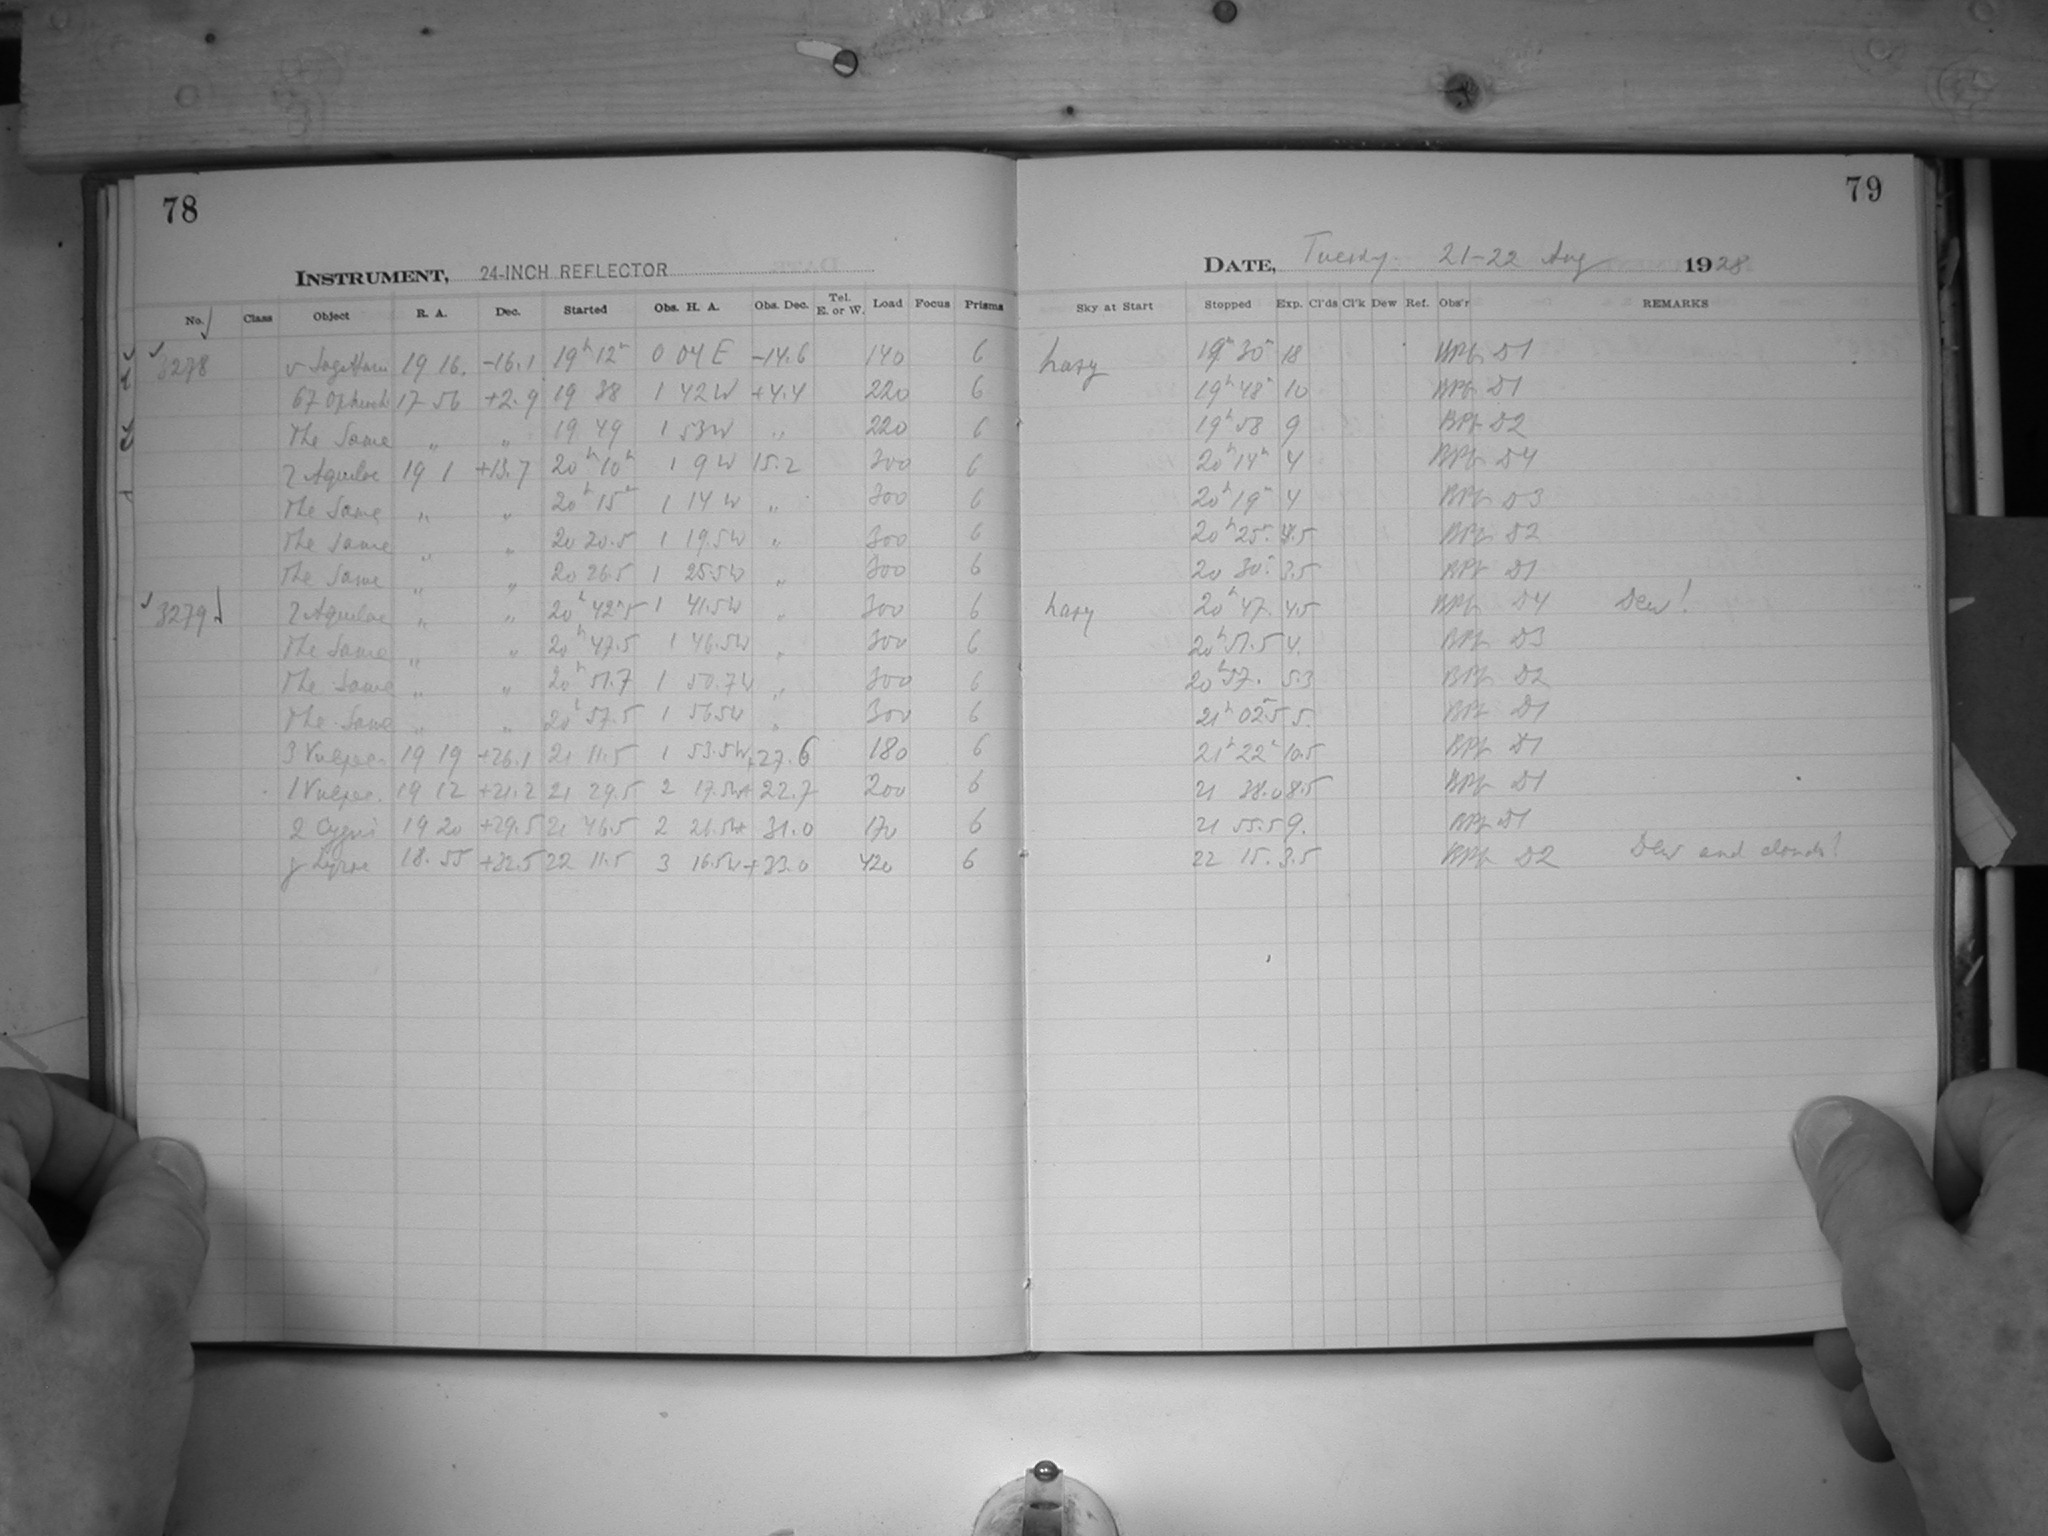 78
INSTRUMENT, 24-INCH REFLECTOR
No. Class Object R. A. Dec. Started Obs. H. A. Obs. Dec. Tel. E. or W. Load Focus Prisms
3278 υ Sagittarii 19 16. -16.1 19h 12m 0 04 E -14.6 140 6
67 Ophiuch 17 56 +2.9 19 38 1 42 W +4.4 220 6
The Same " " 19 49 1 53 W " 220 6
ζ Aquilae 19 1 +13.7 20h 10m 1 9 W 15.2 300 6
The Same " " 20h 15m 1 14 W " 300 6
The Same " " 20 20.5 1 19.5W " 300 6
The Same " " 20 26.5 1 25.5W " 300 6
3279 ζ Aquilae " " 20h 42m5 1 41.5W " 300 6
The Same " " 20h 47.5 1 46.5W " 300 6
The Same " " 20h 51.7 1 50.7W " 300 6
The Same " " 20h 57.5 1 56.5W " 300 6
3 Vulpec. 19 19 +26.1 21 11.5 1 53.5W +27.6 180 6
1 Vulpec. 19 12 +21.2 21 29.5 2 17.5W + 22.7 200 6
2 Cygni 19 20 +29.5 21 46.5 2 26.5W+ 31.0 170 6
γ Lyrae 18.55 +32.5 22 11.5 3 16.5W +33.0 420 6
79
DATE, Tuesday. 21-22 Aug 1928
Sky at Start Stopped Exp. Cl'ds Cl'k Dew Ref. Obs'r REMARKS
hazy 19h 30m 18 D1
19h 48m 10 D1
19h 58 9 D2
20h 14m 4 D4
20h 19m 4 D3
20h 25m 4.5 D2
20 30m 3.5 D1
hazy 20h 47. 4.5 D4 Dew!
20h 51.5 4. D3
20h 57. 5.3 D2
21h 02.5 5. D1
21h 22m 10.5 D1
21 38.0 8.5 D1
21 55.5 9. D1
22 15. 3.5 D2 Dew and clouds!